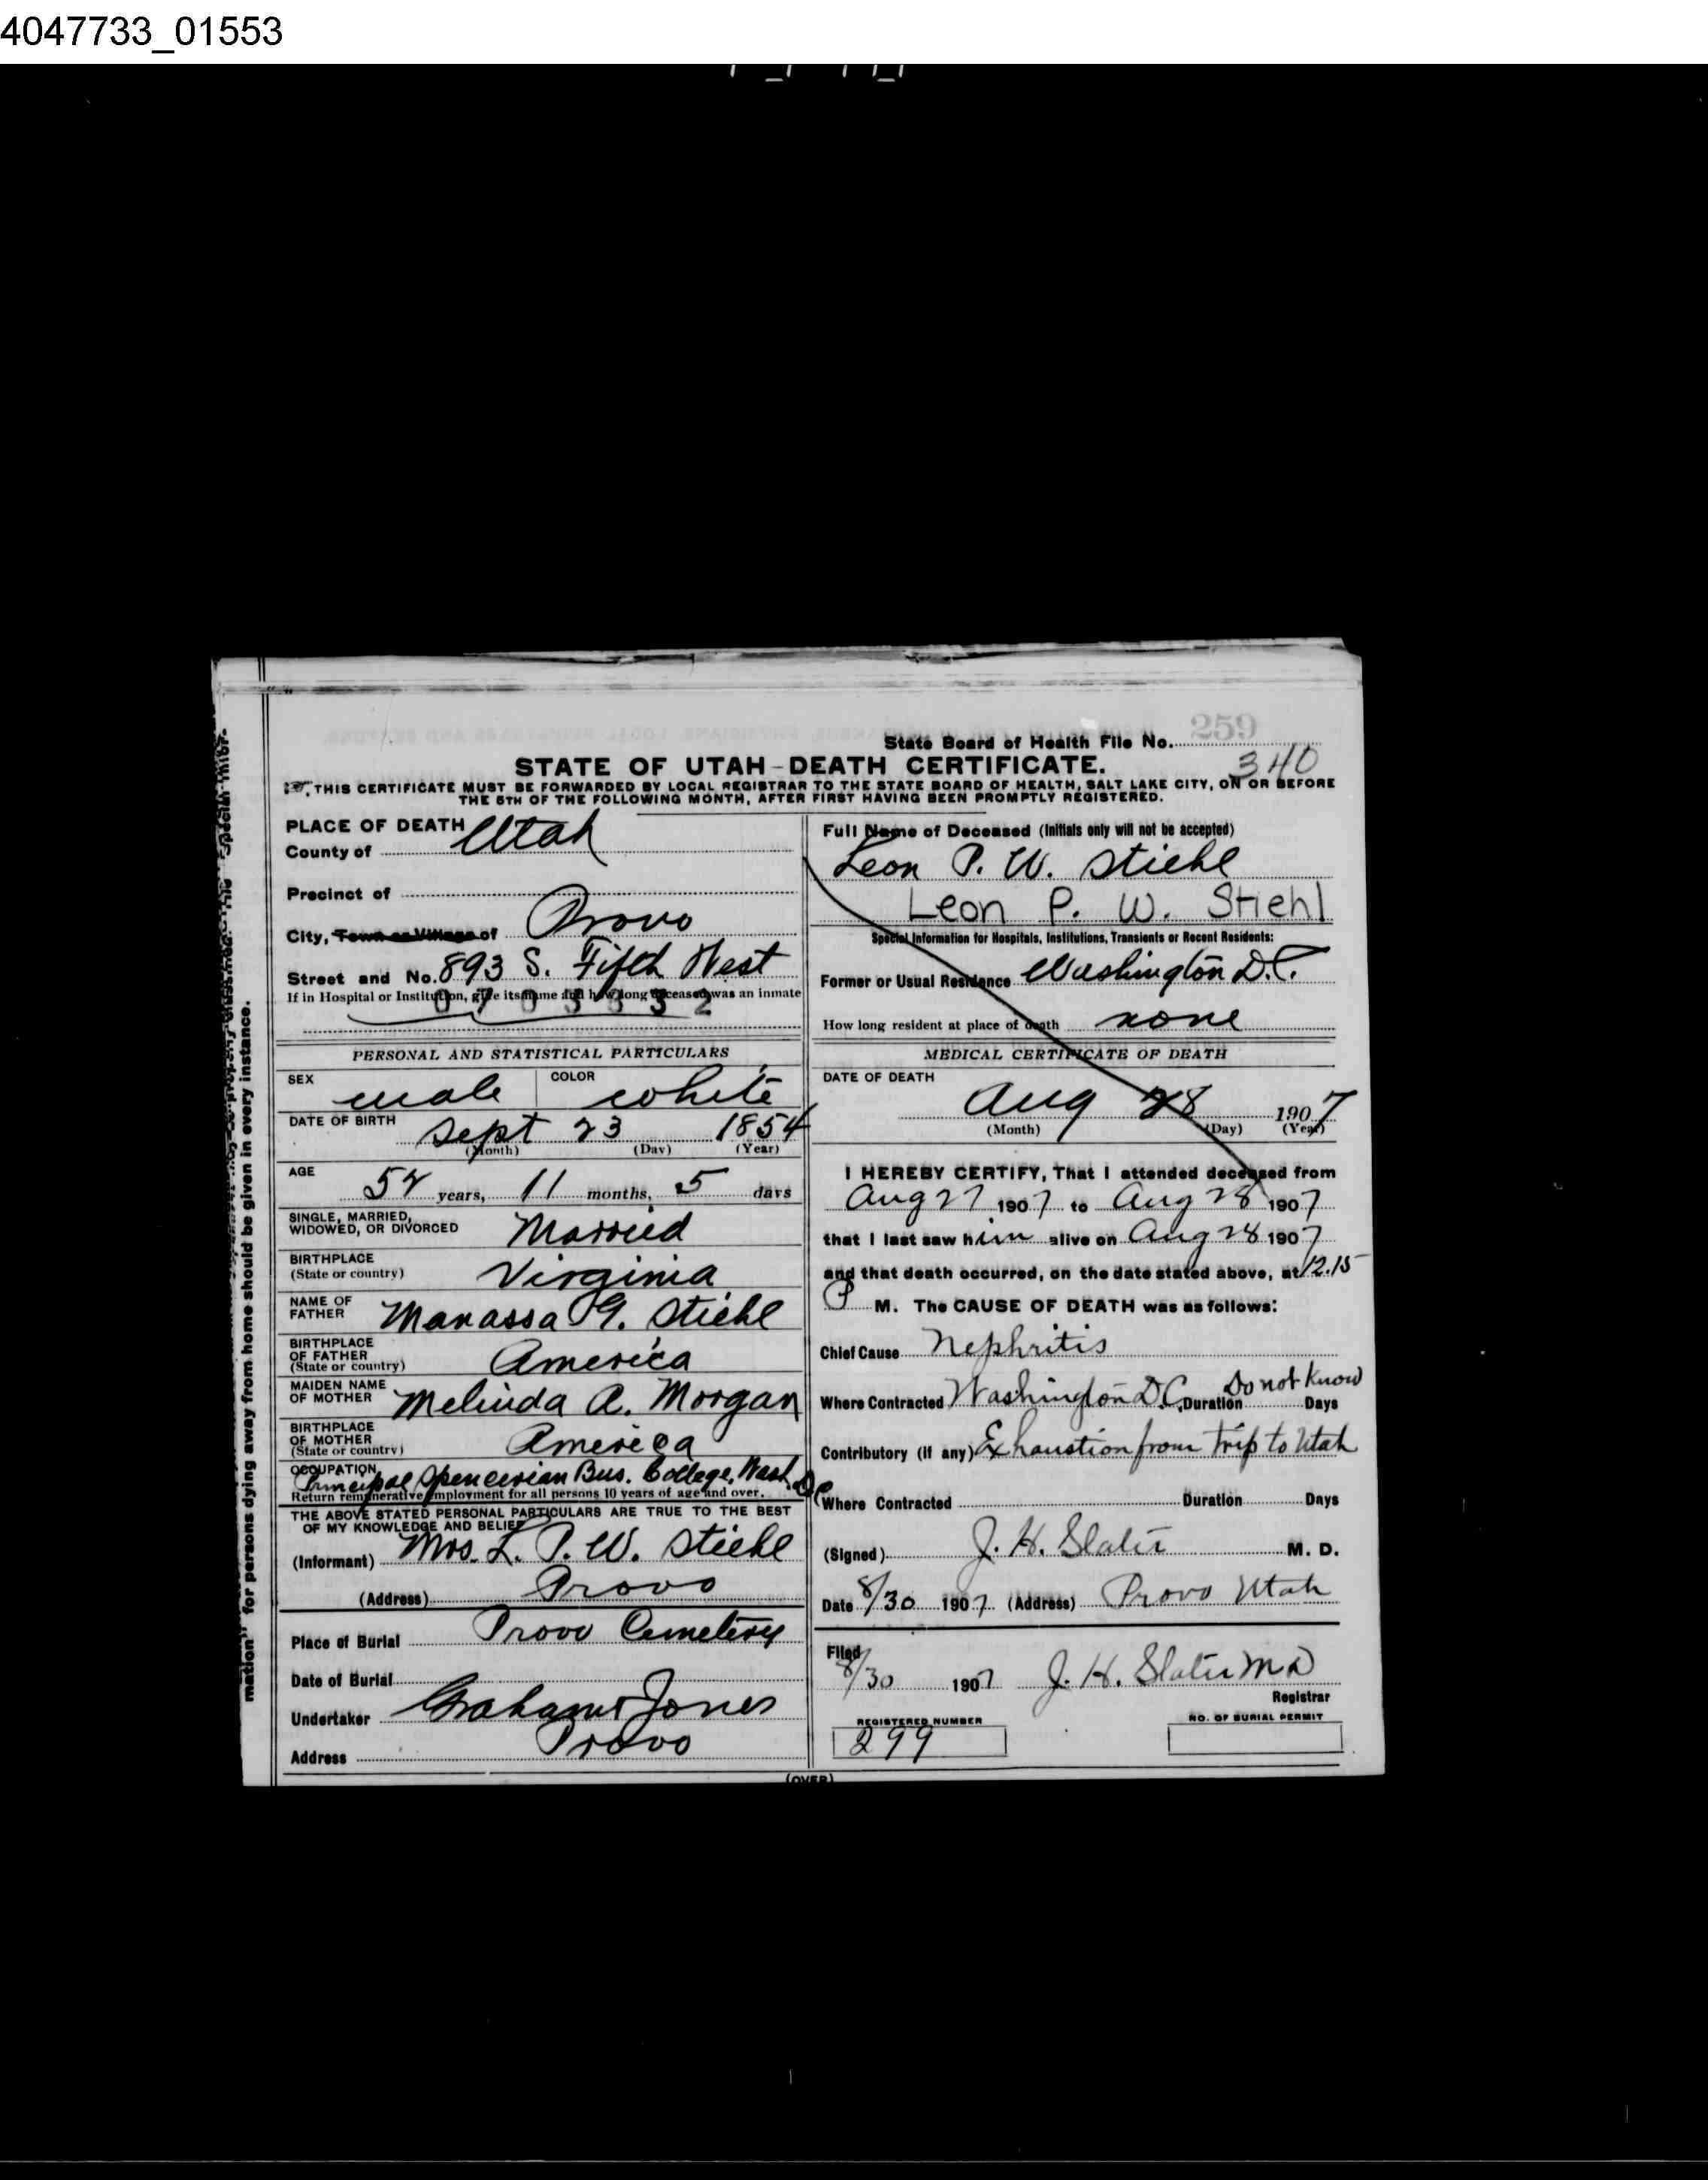 4047733_01553
259
State Board of Health File No.
340
STATE OF UTAH-DEATH CERTIFICATE.
THIS CERTIFICATE MUST BE FORWARDED BY LOCAL REGISTRAR TO THE STATE BOARD OF HEALTH, SALT LAKE CITY, ON OR BEFORE
THE 5TH OF THE FOLLOWING MONTH, AFTER FIRST HAVING BEEN PROMPTLY REGISTERED.
PLACE OF DEATH
County of Utah
Precinct of
City, Town or Village of Provo
Street and No. 893 S. Fifth West
If in Hospital or Institution, give its name and how long deceased was an inmate
PERSONAL AND STATISTICAL PARTICULARS
SEX male COLOR white
DATE OF BIRTH Sept 23 1854
(Month) (Day) (Year)
AGE 52 years, 11 months, 5 days
SINGLE, MARRIED,
WIDOWED, OR DIVORCED Married
BIRTHPLACE
(State or country) Virginia
NAME OF
FATHER Manassa G. Stiehl
BIRTHPLACE
OF FATHER
(State or country) America
MAIDEN NAME
OF MOTHER Melinda A. Morgan
BIRTHPLACE
OF MOTHER
(State or country) America
OCCUPATION
Principal Spencerian Bus. College, Wash. D.C.
Return remunerative employment for all persons 10 years of age and over.
THE ABOVE STATED PERSONAL PARTICULARS ARE TRUE TO THE BEST
OF MY KNOWLEDGE AND BELIEF
(Informant) Mrs. L. P. W. Stiehl
(Address) Provo
Place of Burial Provo Cemetery
Date of Burial
Undertaker Graham & Jones
Address Provo
Full Name of Deceased (Initials only will not be accepted)
Leon P. W. Stiehl
Leon P. W. Stiehl
Special Information for Hospitals, Institutions, Transients or Recent Residents:
Former or Usual Residence Washington D.C.
How long resident at place of death none
MEDICAL CERTIFICATE OF DEATH
DATE OF DEATH
Aug 28 1907
(Month) (Day) (Year)
I HEREBY CERTIFY, That I attended deceased from
Aug 27 1907 to Aug 28 1907
that I last saw him alive on Aug 28 1907
and that death occurred, on the date stated above, at 12.15
P M. The CAUSE OF DEATH was as follows:
Chief Cause Nephritis
Where Contracted Washington D.C. Duration Do not Know Days
Contributory (if any) Exhaustion from trip to Utah
Where Contracted Duration Days
(Signed) J. H. Slater M. D.
Date 8/30 1907 (Address) Provo Utah
Filed
8/30 1907 J. H. Slater MD
Registrar
REGISTERED NUMBER
299
NO. OF BURIAL PERMIT
(OVER)
mation" for persons dying away from home should be given in every instance.